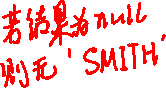 若结果为null
则无'SMITH'